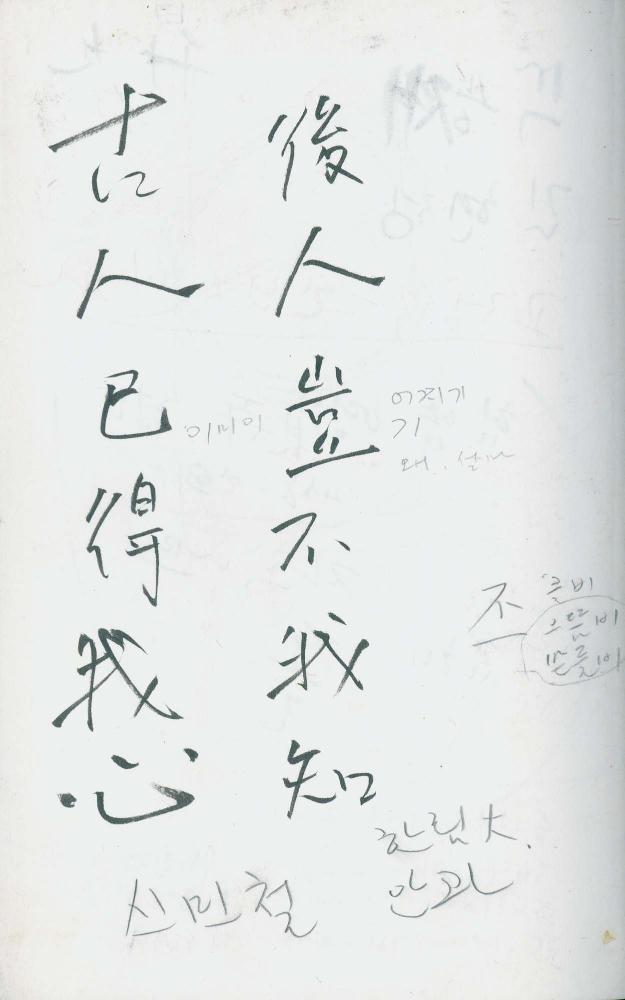 後人豈不我知
古人已得我心
어찌기
기
왜, 설마
이미이
丕 클비
으뜸비
받들비
한림大.
안과
신민철